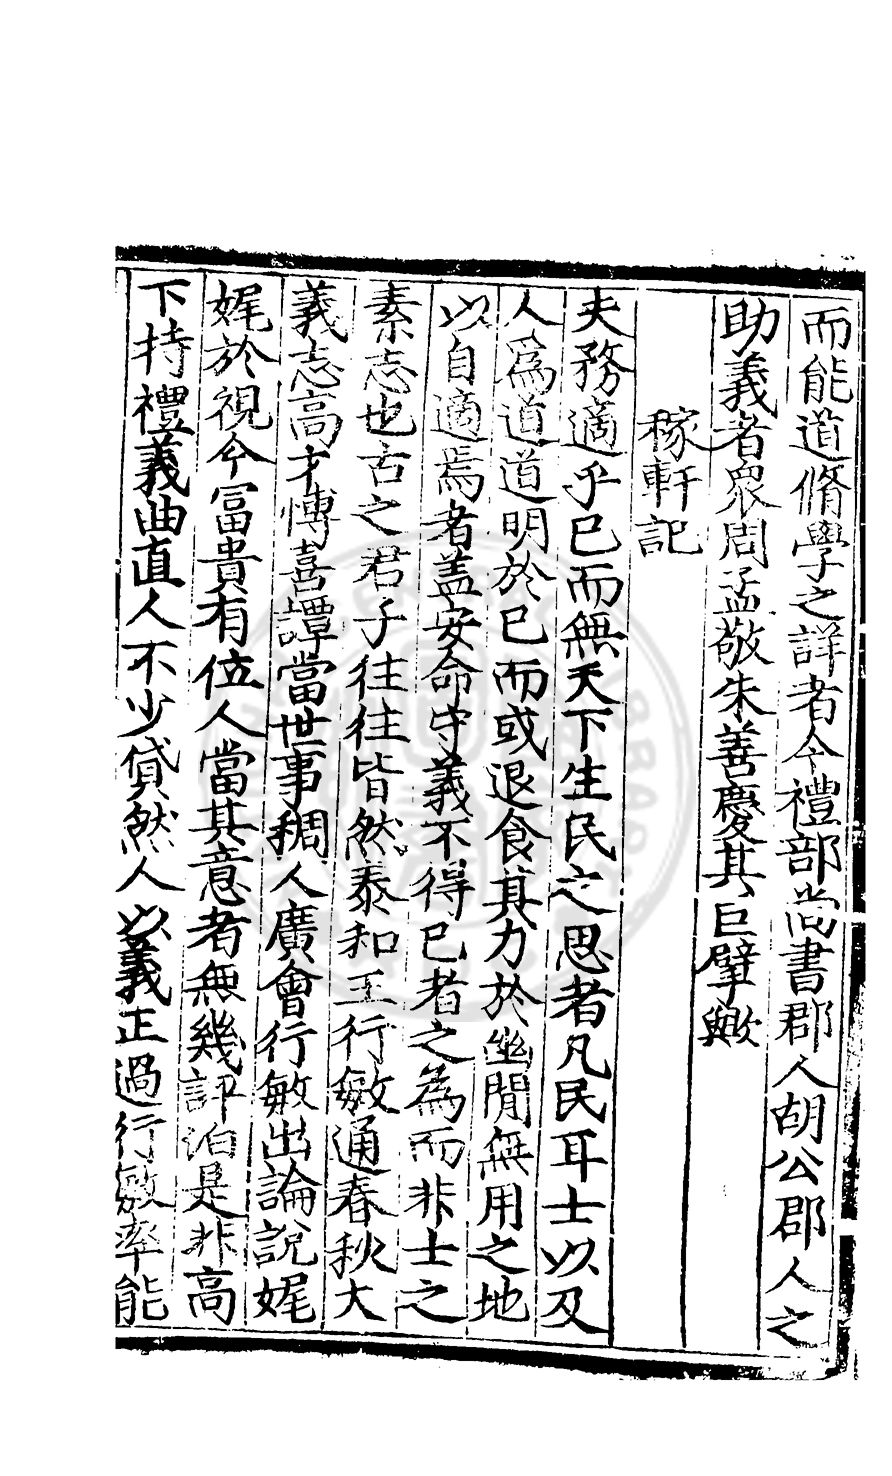 而能道脩學之詳者今禮部尚書郡人胡公郡人之
助義者眾周孟敬朱善慶其巨擘歟
稼軒記
夫務適乎已而無天下生民之思者凡民耳士以及
人爲道道明於已而或退食其力於幽閒無用之地
以自適焉者盖安命守義不得已者之為而非士之
素志也古之君子往往皆然泰和王行敏通春秋大
義志高才博喜譚當世事稠人廣會行敏出論説娓
娓於視今冨貴有位人當其意者無幾評泊是非高
下持禮義曲直人不少貸然人以義正過行敏率能